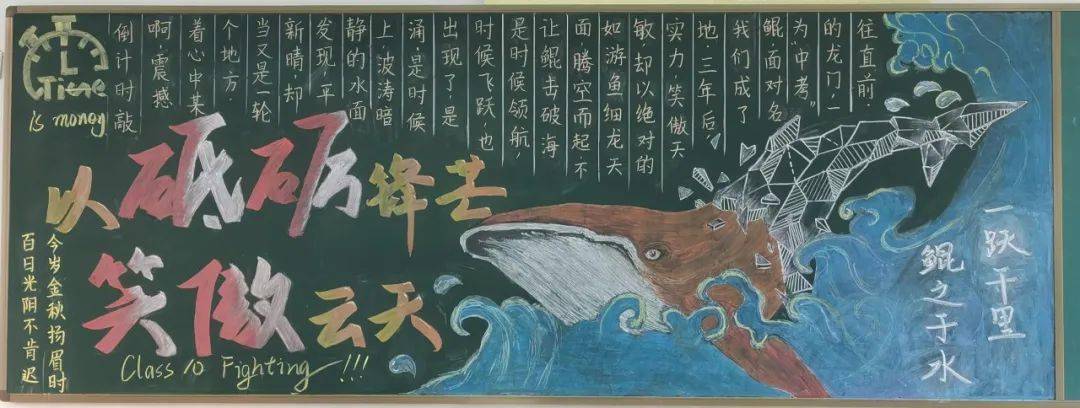 Time
is money
倒计时敲
啊,震撼
着心中某
个地方.
当又是一轮
新晴,却
发现,平
静的水面
上,波涛暗
涌,是时候
出现了,是
时候飞跃,也
是时候领航,
让鲲击破海
面腾空而起,不
如游鱼细龙天
敏,却以绝对的
实力,笑傲天
地,三年后,
我们成了
鲲,面对名
为“中考”
的龙门,一
往直前.
以砥砺锋芒
笑傲云天
今岁金秋扬眉时
百日光阴不肯迟
Class 10 Fighting!!!
鲲之于水
一跃千里